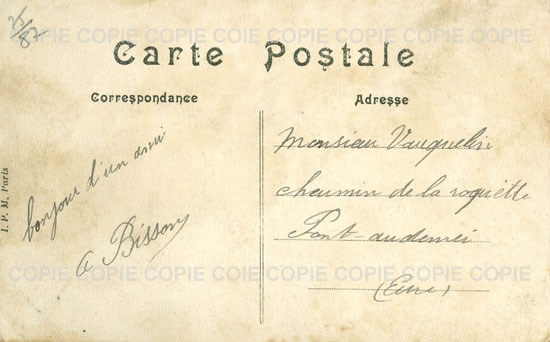 25/82
COPIE COPIE COPIE COIE COPIE COPIE COPIE
Carte Postale
Correspondance
Adresse
bonjour d'un ami
a Bisson
Monsieur Vauquelin
cheumin de la roquette
Pont-audemei
COPIE COPIE COPIE COIE COPIE COPIE COPIE
(Eure)
I. P. M. Paris